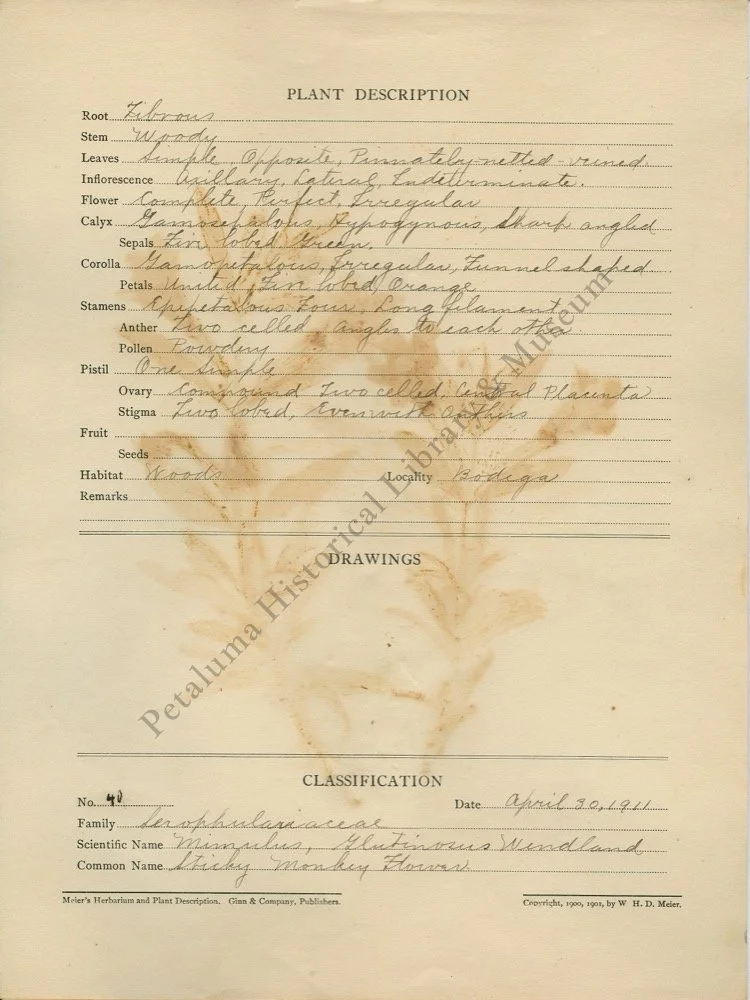 PLANT DESCRIPTION
Root Fibrous
Stem Woody
Leaves Simple, Opposite, Pinnately netted-veined.
Inflorescence Axillary, Lateral, Indeterminate.
Flower Complete, Perfect, Irregular
Calyx Gamosepalous, Hypogynous, Sharp angled
Sepals Five lobed, Green.
Corolla Gamopetalous, Irregular, Funnel shaped
Petals United, Five lobed, Orange
Stamens Epipetalous Four, Long filament
Anther Two celled, Angles to each other
Pollen Powdery
Pistil One Simple
Ovary Compound Two celled, Central Placenta
Stigma Two lobed, Even with Anthers
Fruit
Seeds
Habitat Woods Locality Bodega
Remarks
DRAWINGS
Petaluma Historical Library & Museum
CLASSIFICATION
No. 40 Date April 30, 1911
Family Scrophulariaceae
Scientific Name Mimulus, Glutinosus Wendland
Common Name Sticky Monkey Flower
Meier's Herbarium and Plant Description. Ginn & Company, Publishers. Copyright, 1900, 1901, by W. H. D. Meier.